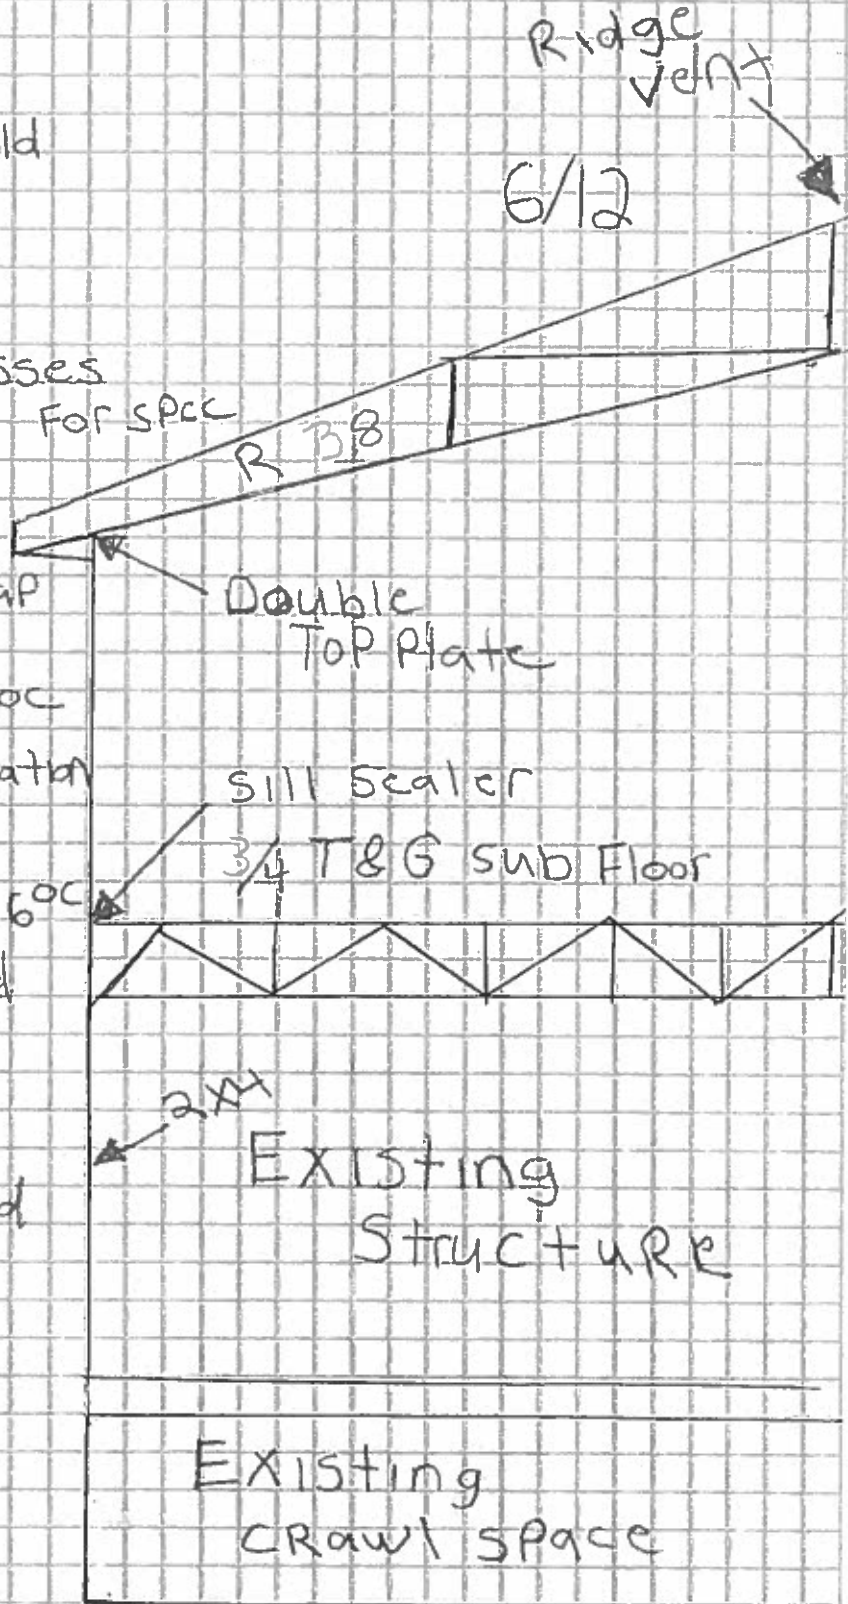 Ridge
Vent
6/12
For spec
R 38
Double
Top Plate
oc
Sill Sealer
3/4 T&G Sub Floor
6" oc
2x4
Existing
Structure
Existing
Crawl space